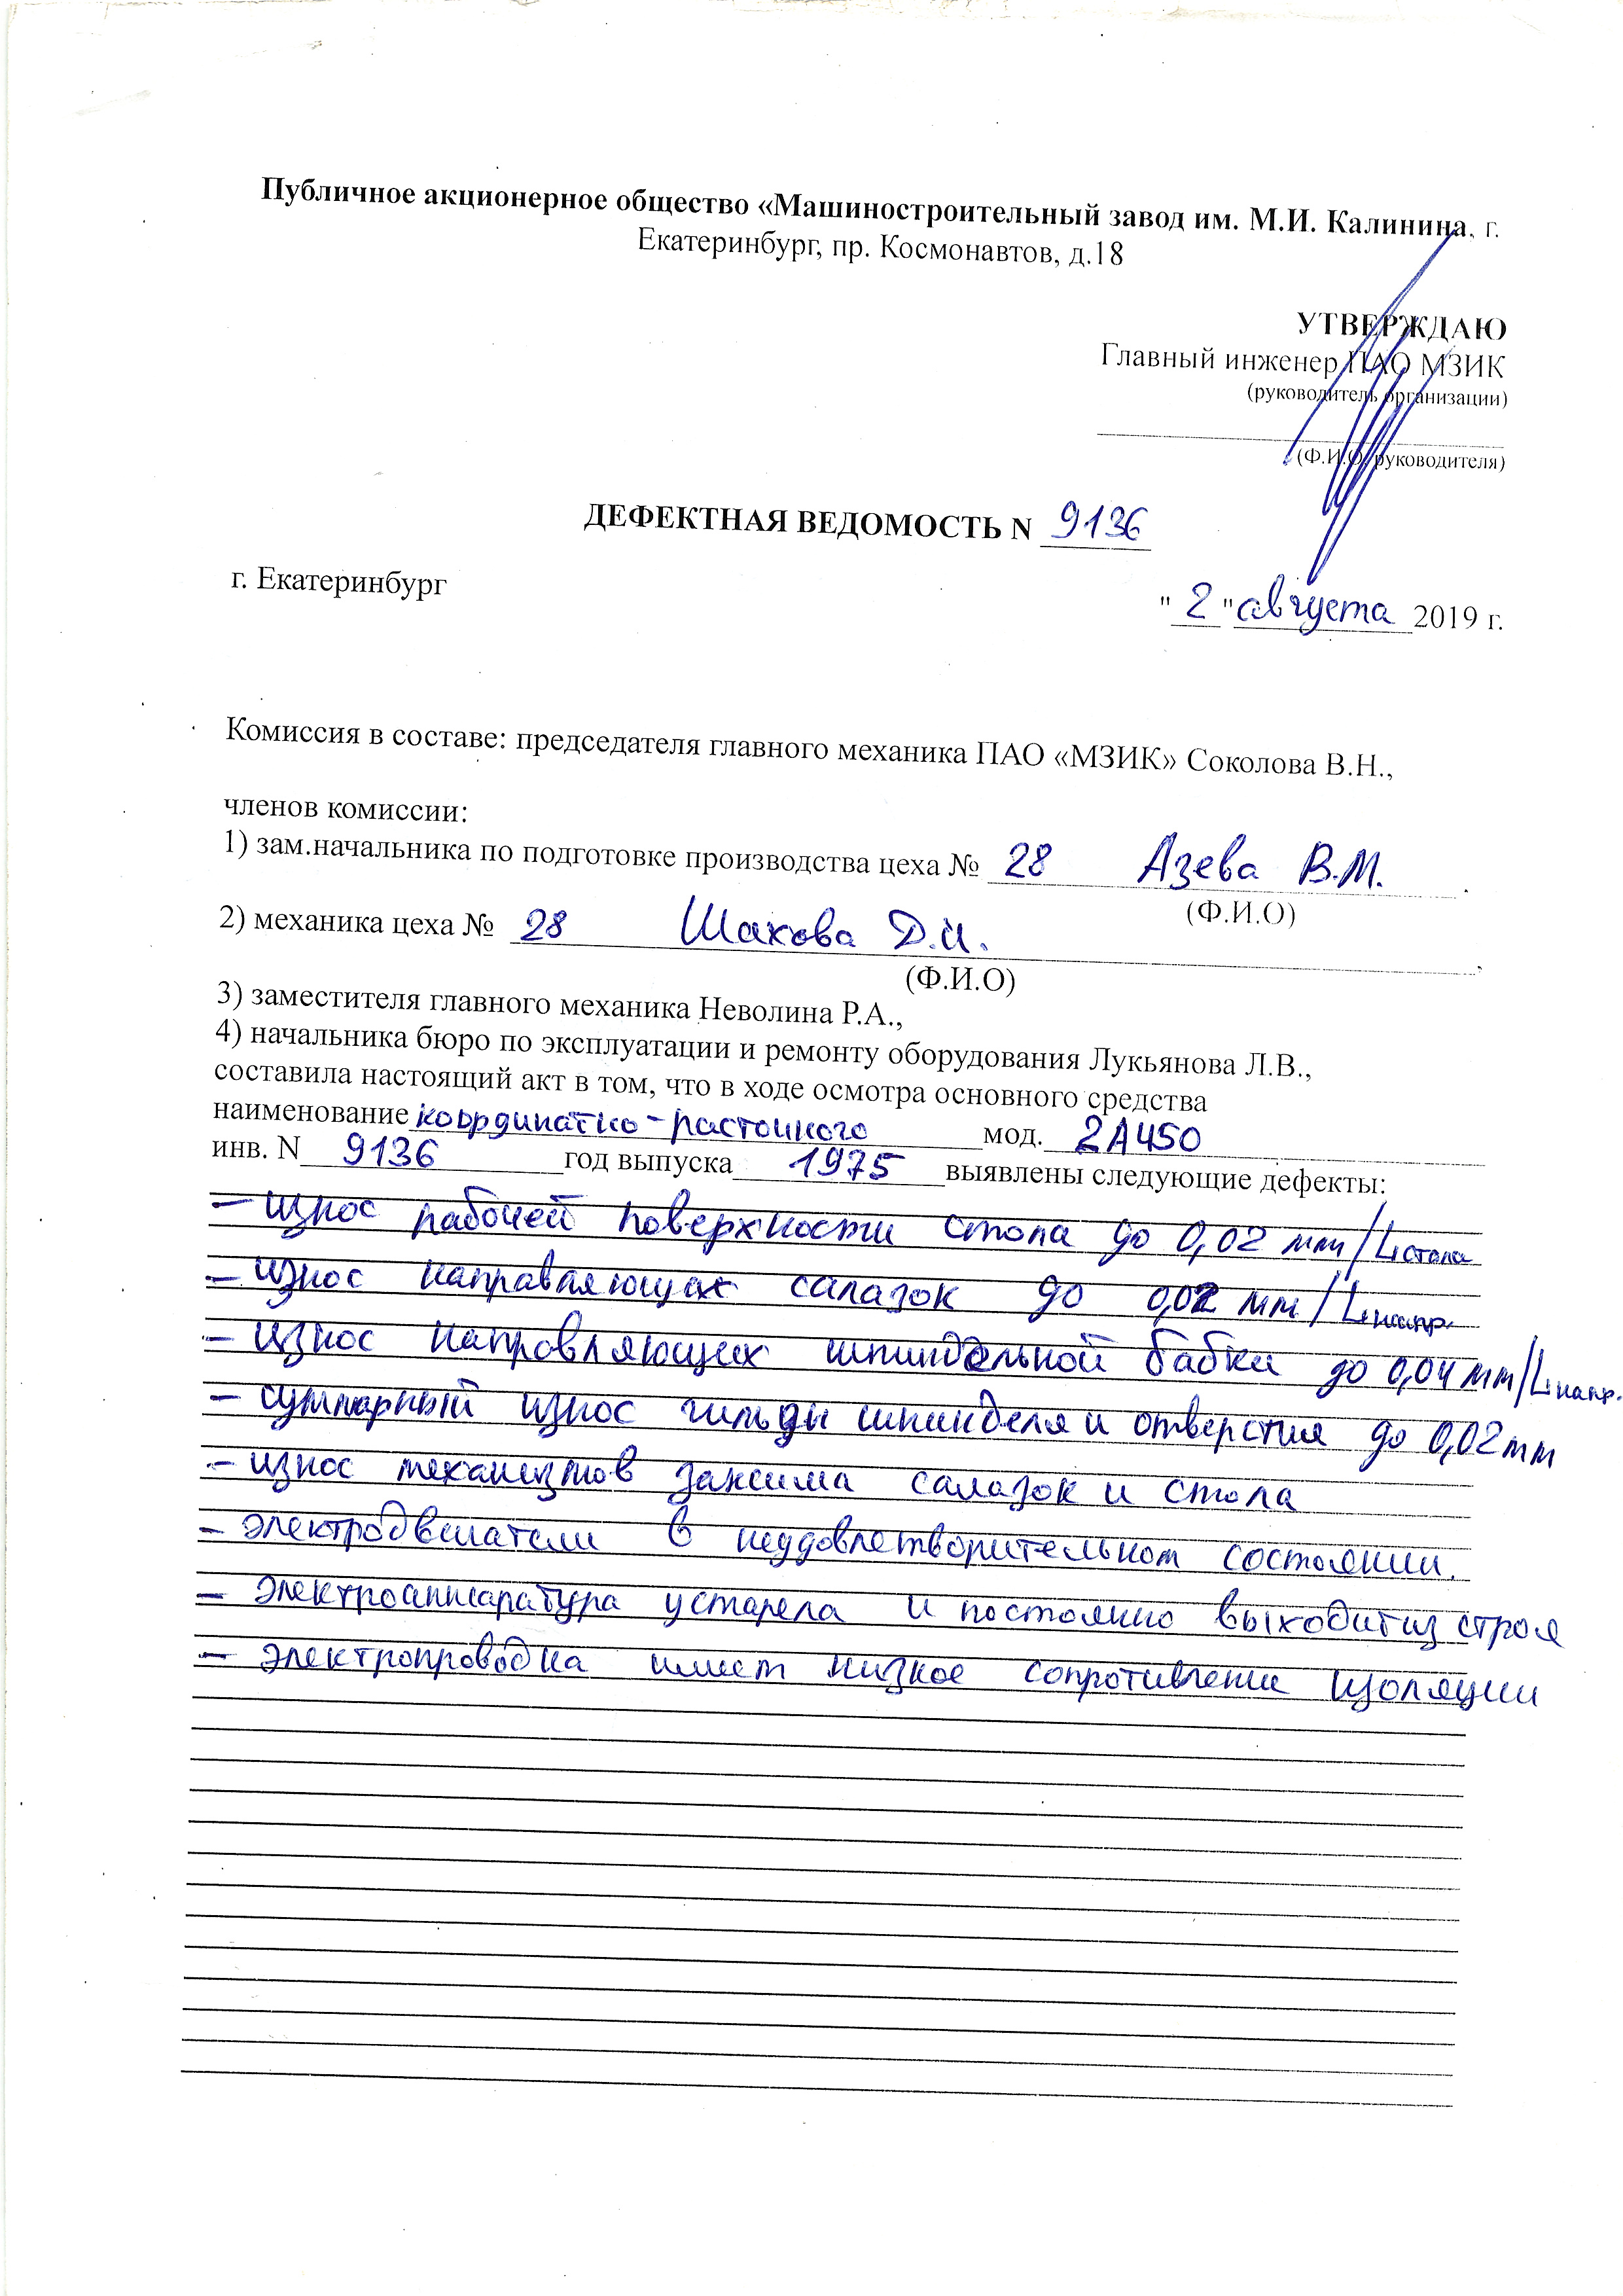 Публичное акционерное общество «Машиностроительный завод им. М.И. Калинина, г.
Екатеринбург, пр. Космонавтов, д.18
УТВЕРЖДАЮ
Главный инженер ПАО МЗИК
(руководитель организации)
(Ф.И.О. руководителя)
ДЕФЕКТНАЯ ВЕДОМОСТЬ N 9136
г. Екатеринбург
" 2 " августа 2019 г.
Комиссия в составе: председателя главного механика ПАО «МЗИК» Соколова В.Н.,
членов комиссии:
1) зам.начальника по подготовке производства цеха № 28 Азева В.М.
(Ф.И.О)
2) механика цеха № 28 Шахова Д.И.
(Ф.И.О)
3) заместителя главного механика Неволина Р.А.,
4) начальника бюро по эксплуатации и ремонту оборудования Лукьянова Л.В.,
составила настоящий акт в том, что в ходе осмотра основного средства
наименование координатно-расточного мод. 2А450
инв. N 9136 год выпуска 1975 выявлены следующие дефекты:
- износ рабочей поверхности стола до 0,02 мм/L стола
- износ направляющих салазок до 0,02 мм/L напр.
- износ направляющих шпиндельной бабки до 0,04 мм/L напр.
- суммарный износ гильзы шпинделя и отверстия до 0,02 мм
- износ механизмов зажима салазок и стола
- электродвигатели в неудовлетворительном состоянии.
- электроаппаратура устарела и постоянно выходит из строя
- электропроводка имеет низкое сопротивление изоляции